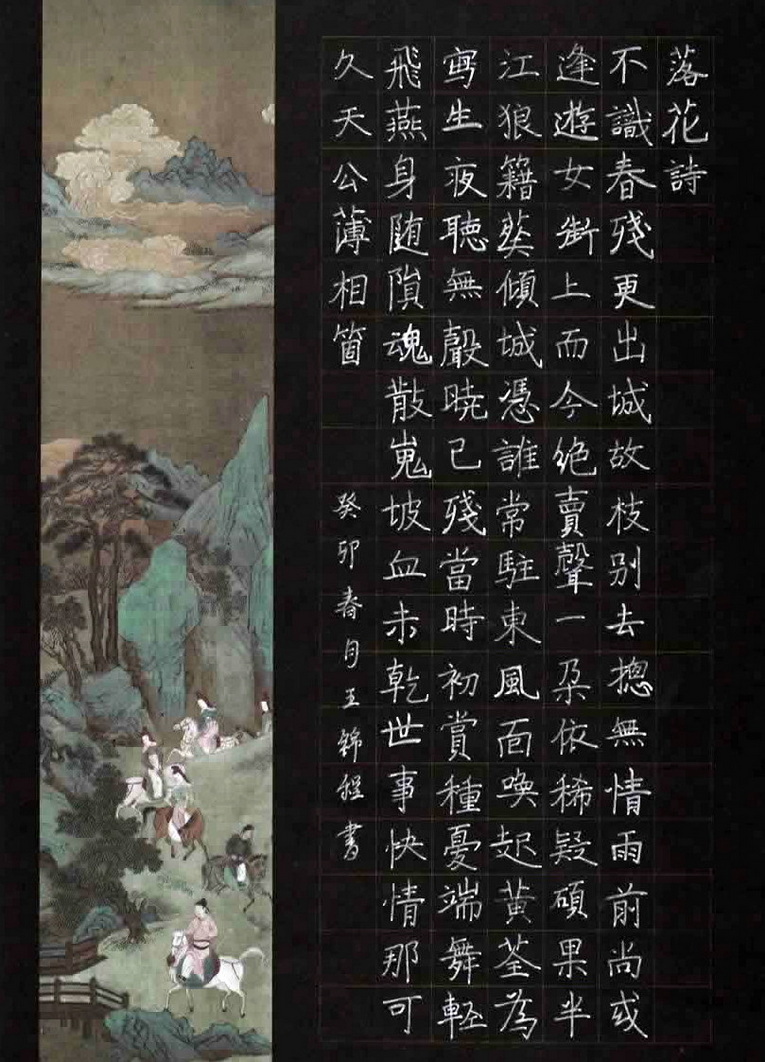 落花詩
不識春殘更出城故枝别去摠無情雨前尚或
逢遊女街上而今绝賣聲一朵依稀疑碩果半
江狼籍葬傾城憑誰常駐東風面唤起黄荃為
寫生夜聽無聲曉已殘當時初賞種憂端舞輕
飛燕身随隕魂散嵬坡血未乾世事快情那可
久天公薄相箇
癸卯春月王錦程書